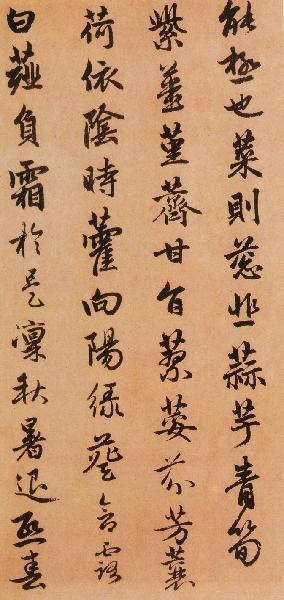 能極也菜則葱韭蒜芋青筍
紫薑堇薺甘旨蓼荽芬芳蘘
荷依陰時藿向陽緑葵含露
白薤負霜於是凜秋暑退熙春